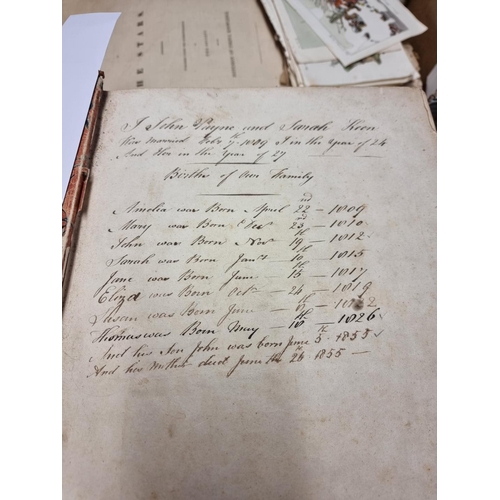 THE STARS.
I John Payne and Sarah Keen
Was married Feby 7th 1809 I in the Year of 24
And Her in the Year of 27
Births of Our Family
Amelia was Born April 22nd — 1809
Mary was Born Decr 23rd — 1810
John was Born Nov 19th — 1812
Sarah was Born Jany 10th — 1815
Jane was Born June — 15th — 1817
Eliza was Born Octr — 24 — 1819
Susan was Born June — 9th — 1822
Thomas was Born May — 10th — 1826
And his Son John was born June 5th 1855
And his Mother died June the 24th 1855 —